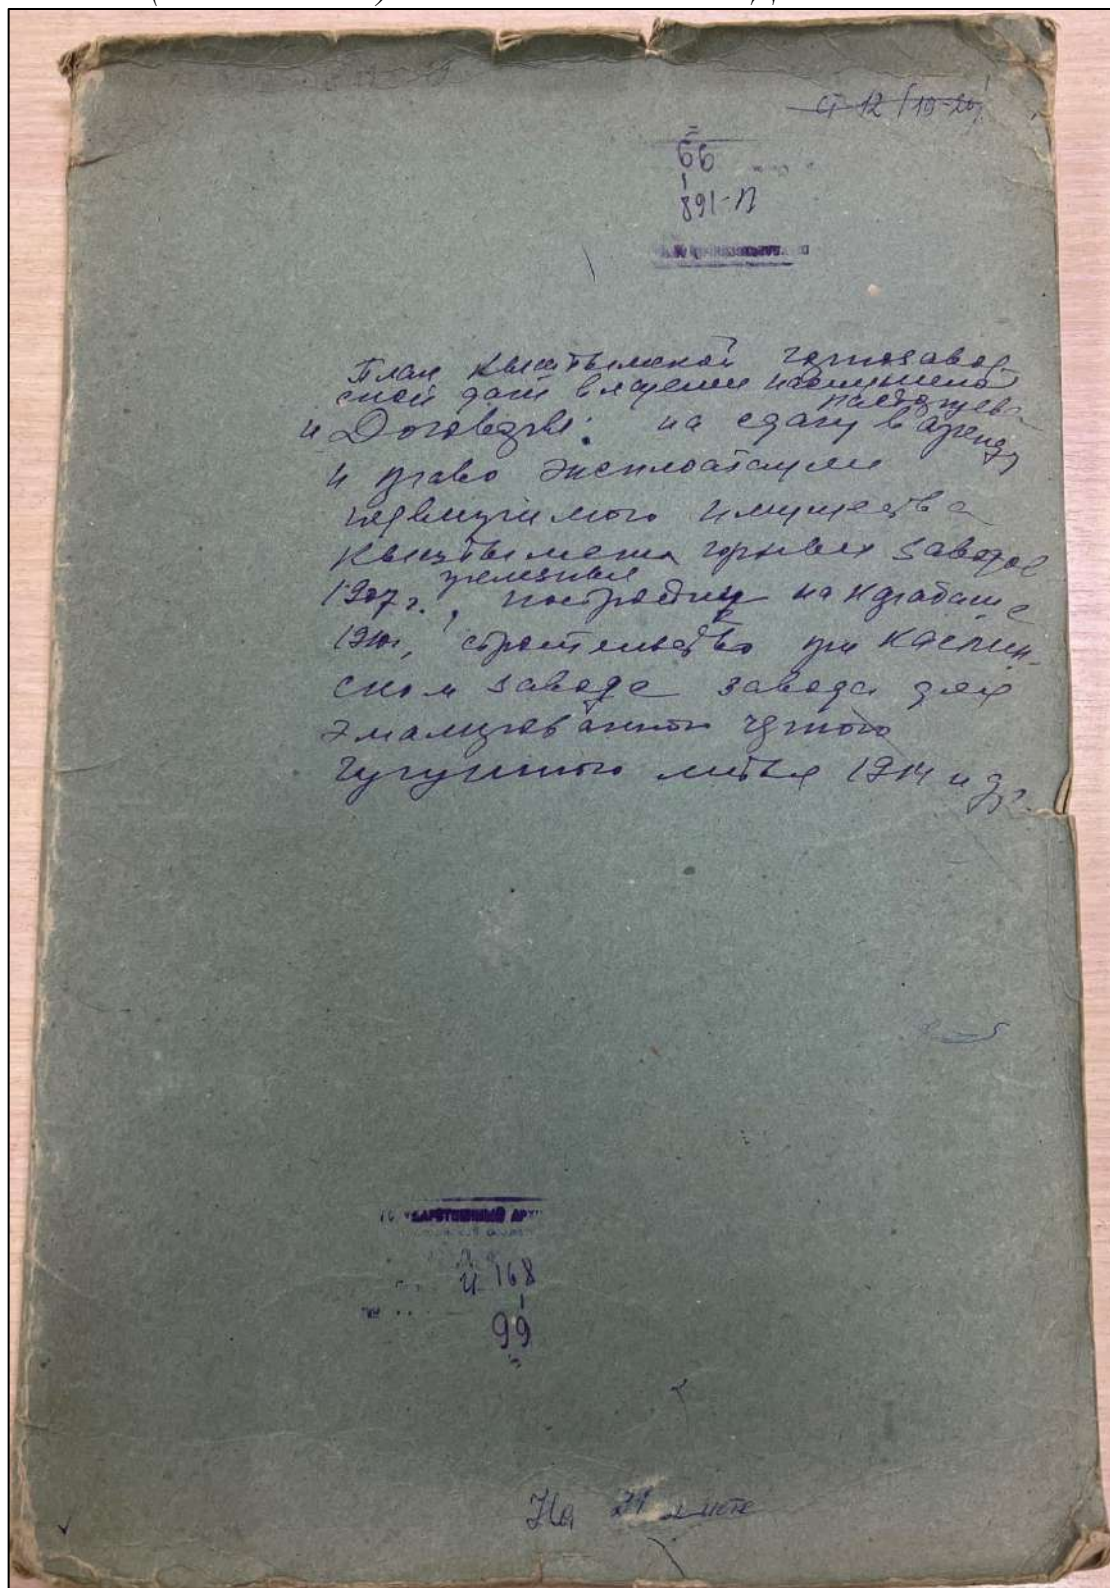 ст 12 (19-20)
66
1
891-П
План Кыштымской горнозавод
ской дачи владении
и Договоры: на сдачу в аренду
и право эксплоатации
недвижимого имущества
Кыштымских горных заводов
1907 г., постройки на Карабаше
железные
1910г, строительство при Каслин-
ском заводе завода для
эмалированного
чугунного литья 1914 и др.
ГОСУДАРСТВЕННЫЙ АРХ
И 168
1
99
На 21 листе